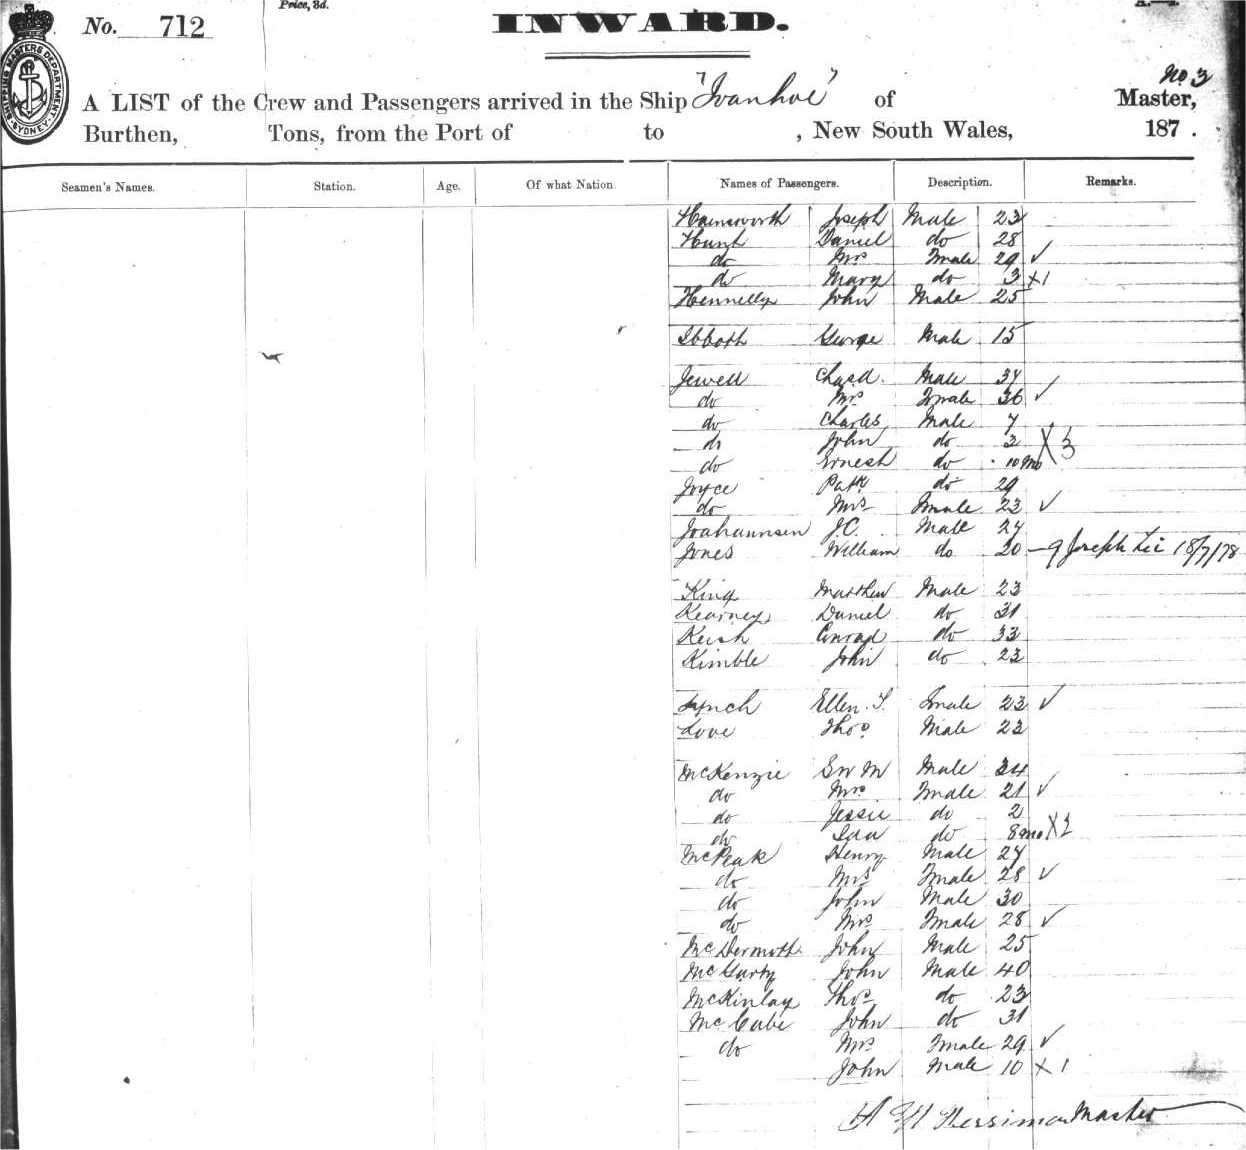 Price, 3d.
No. 712
INWARD.
SHIPPING MASTERS DEPARTMENT SYDNEY
No 3
A LIST of the Crew and Passengers arrived in the Ship "Ivanhoe" of Master,
Burthen, Tons, from the Port of to , New South Wales, 187 .
Seamen's Names. Station. Age. Of what Nation Names of Passengers. Description. Remarks.
Hainsworth Joseph Male 23
Hunt Daniel do 28
do Mrs Fmale 29 ✓
do Mary do 3 X1
Hennelly John Male 25
Ibboth George Male 15
Jewell Chas Male 34
do Mrs Fmale 36 ✓
do Charles Male 7
do John do 2 X3
do Ernest do 10 mo
Joyce Patk do 29
do Mrs Fmale 23 ✓
Joahaunsen J.C. Male 24
Jones William do 20 Joseph Lee 18/7/78
King Matthew Male 23
Kearney Daniel do 31
Conrad do 33
Kimble John do 23
Lynch Ellen T. Fmale 23 ✓
Love Thos Male 22
McKenzie M Male 34
do Mrs Fmale 21 ✓
do Jessie do 2
do Ida do 8 mo X2
McPeak Henry Male 24
do Mrs Fmale 28 ✓
do John Male 30
do Mrs Fmale 28 ✓
McDermott John Male 25
McGarty John Male 40
McKinlay Thos do 23
McCabe John do 31
do Mrs Fmale 29 ✓
John Male 10 X 1
Master